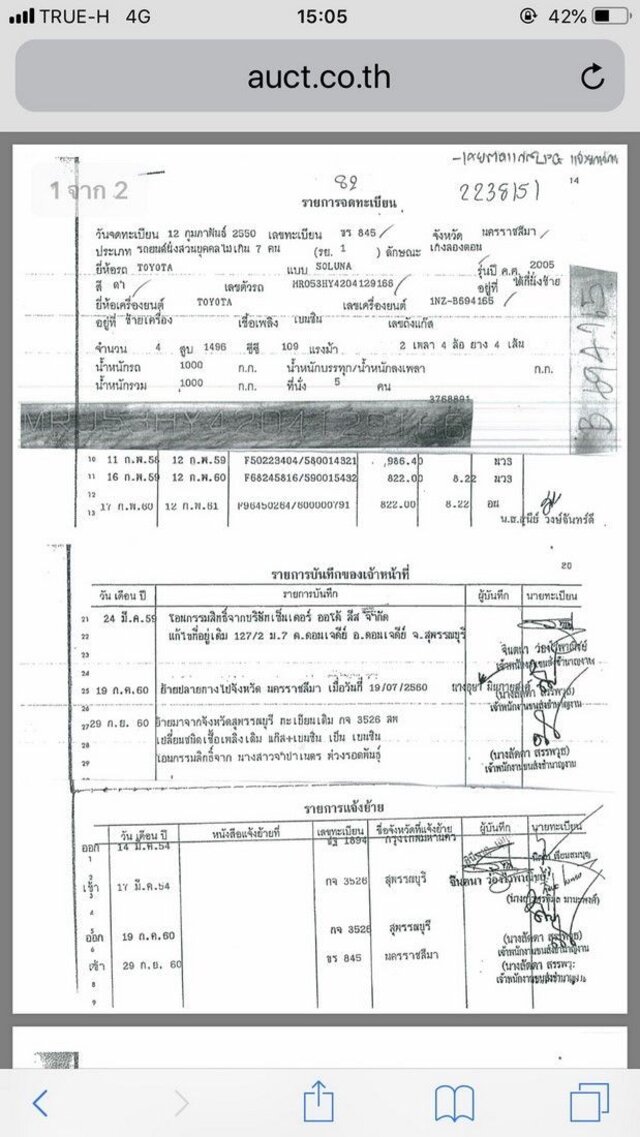 TRUE-H 4G 15:05 42%
auct.co.th
1 จาก 2
82
2238151
14
รายการจดทะเบียน
วันจดทะเบียน 12 กุมภาพันธ์ 2550 เลขทะเบียน ขร 845 จังหวัด นครราชสีมา
ประเภท รถยนต์นั่งส่วนบุคคลไม่เกิน 7 คน (รย. 1 ) ลักษณะ เก๋งสองตอน
ยี่ห้อรถ TOYOTA แบบ SOLUNA รุ่นปี ค.ศ. 2005
สี ดำ เลขตัวรถ MR053HY4204129166 อยู่ที่ ใต้ที่นั่งซ้าย
ยี่ห้อเครื่องยนต์ TOYOTA เลขเครื่องยนต์ 1NZ-B694165
อยู่ที่ ซ้ายเครื่อง เชื้อเพลิง เบนซิน เลขถังแก๊ส
จำนวน 4 สูบ 1496 ซีซี 109 แรงม้า 2 เพลา 4 ล้อ ยาง 4 เส้น
น้ำหนักรถ 1000 ก.ก. น้ำหนักบรรทุก/น้ำหนักลงเพลา ก.ก.
น้ำหนักรวม 1000 ก.ก. ที่นั่ง 5 คน
3768891
10 11 ก.พ.58 12 ก.พ.59 F50223404/580014321 ,986.40 มวร
11 16 ก.พ.59 12 ก.พ.60 F68245816/590015432 822.00 8.22 มวร
12
13 17 ก.พ.60 12 ก.พ.61 F96450264/600000791 822.00 8.22 อน
น.ส.สุนีย์ วงษ์จันทร์ดี
20
รายการบันทึกของเจ้าหน้าที่
วัน เดือน ปี รายการบันทึก ผู้บันทึก นายทะเบียน
21 24 มี.ค.59 โอนกรรมสิทธิ์จากบริษัทเซ็นเตอร์ ออโต้ ลีส จำกัด
22 แก้ไขที่อยู่เดิม 127/2 ม.7 ต.ดอนเจดีย์ อ.ดอนเจดีย์ จ.สุพรรณบุรี
23
24
25 19 ก.ค.60 ย้ายปลายทางไปจังหวัด นครราชสีมา เมื่อวันที่ 19/07/2560
26
27 29 ก.ย. 60 ย้ายมาจากจังหวัดสุพรรณบุรี ทะเบียนเดิม กจ 3526 สพ
28 เปลี่ยนชนิดเชื้อเพลิงเดิม แก๊ส+เบนซิน เป็น เบนซิน
29 โอนกรรมสิทธิ์จาก นางสาวจำปาเนตร พ่วงรอดพันธุ์
(นางลัดดา สรรพวุธ)
เจ้าพนักงานขนส่งชำนาญงาน
รายการแจ้งย้าย
วัน เดือน ปี หนังสือแจ้งย้ายที่ เลขทะเบียน ชื่อจังหวัดที่แจ้งย้าย ผู้บันทึก นายทะเบียน
ออก 14 มี.ค.54 1894 กรุงเทพมหานคร
1
2
เข้า 17 มี.ค.54 กจ 3526 สุพรรณบุรี
3
4
5 กจ 3526 สุพรรณบุรี
ออก 19 ก.ค.60 (นางลัดดา สรรพวุธ)
6 เจ้าพนักงานขนส่งชำนาญงาน
เข้า 29 ก.ย. 60 ขร 845 นครราชสีมา (นางลัดดา สรรพวุ
8 เจ้าพนักงานขนส่งชำนาญงาน
9